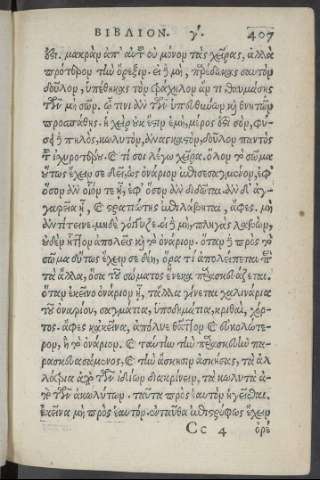 ΒΙΒΛΙΟΝ. γ'. 407
ὄξει. μακρὰν ἀπ' αὐτοῦ οὐ μόνον τὰς χεῖρας, ἀλλὰ
πρότερον τὴν ὄρεξιν. εἰ δὲ μή, παρέδωκας σαυτὸν
δοῦλον, ὑπέθηκας τὸν τράχηλον ἄν τι θαυμάσῃς
τῶν μὴ σῶν. ᾧ τινι ἂν τῶν ὑπευθύνων καὶ θνητῶν
προσπαθῇς. ἡ χεὶρ οὐκ ἔστιν ἐμὸ, μέρος ἐστὶ σὸν, φύ-
σει δὲ πηλὸς, κωλυτὸν, ἀναγκαστὸν, δοῦλον παντὸς
τοῦ ἰσχυροτέρου. καὶ τί σοι λέγω χεῖρα. ὅλον τὸ σῶμα
οὕτως ἔχειν σε δεῖ, ὡς ὀνάριον ἐπισεσαγμένον, ἐφ'
ὅσον ἂν οἷόν τε ᾖ, ἐφ' ὅσον ἂν διδῶται. ἂν δ' ἀγ-
γαρεία ᾖ, καὶ στρατιώτης ἐπιλάβηται, ἄφες. μὴ
ἀντίτεινε μηδὲ γόγγυζε. εἰ δὲ μή, πληγὰς λαβὼν,
οὐδὲν ἧττον ἀπολεῖς καὶ τὸ ὀνάριον. ὅταν δὲ πρὸς τὸ
σῶμα οὕτως ἔχειν σε δέῃ, ὅρα τί ἀπολείπεται περὶ
τὰ ἄλλα, ὅσα τοῦ σώματος ἕνεκα παρασκευάζεται.
ὅταν ἐκεῖνο ὀνάριον ᾖ, τἄλλα γίνεται χαλινάρια
τοῦ ὀναρίου, σαγμάτια, ὑποδημάτια, κριθαὶ, χόρ-
τος. ἄφες κἀκεῖνα, ἀπόλυε θᾶττον καὶ εὐκολώτε-
ρον, ἢ τὸ ὀνάριον. καὶ ταύτην τὴν παρασκευὴν πα-
ρασκευασάμενος, καὶ τὴν ἄσκησιν ἀσκήσας, τὰ ἀλ-
λότρια ἀπὸ τῶν ἰδίων διακρίνειν, τὰ κωλυτὰ ἀ-
πὸ τῶν ἀκωλύτων. ταῦτα πρὸς ἑαυτὸν ἡγεῖσθαι.
ἐκεῖνα μὴ πρὸς ἑαυτὸν. ἐνταῦθα ἐπιστρόφως ἔχειν
Cc 4 ὀρέ